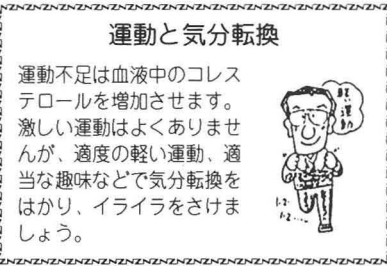 運動と気分転換
運動不足は血液中のコレス
テロールを増加させます。
激しい運動はよくありませ
んが、適度の軽い運動、適
当な趣味などで気分転換を
はかり、イライラをさけま
しょう。
軽い
運動
1・2・
1・2・…